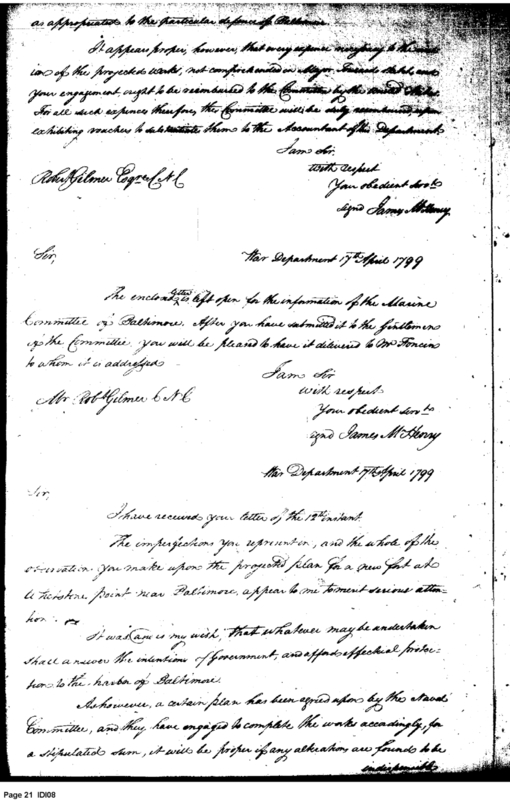 as appropriated to the particular defence of Baltimore.
It appears proper, however, that every expence necessary to the
ion of the projected works, not comprehended in Major
your engagement, ought to be reimbursed to the Committee by the United States.
For all such expences therefore, the Committee will be duly reimbursed upon
exhibiting vouchers to them to the Accountant of this Department
I am Sir,
with respect
Robert Gilmer Esqr C N C
Your obedient Servt
signd James McHenry
War Department 17th April 1799
Sir,
The enclosed letter is left open for the information of the Marine
Committee of Baltimore. After you have submitted it to the Gentlemen
of the Committee you will be pleased to have it delivered to Mr Foncin
to whom it is addressed
I am Sir
with respect
Mr Robt Gilmer C N C
Your obedient servt
signd James McHenry
War Department 17th April 1799
Sir,
I have received your letter of the 12th instant.
The imperfections you represent in, and the whole of the
observation you make upon the projected plan for a new fort at
Whetstone point near Baltimore, appear to me to merit serious atten-
tion.
It was and is my wish, that whatever may be undertaken
shall answer the intentions of Government, and afford effectual protec-
tion to the harbor of Baltimore.
As however, a certain plan has been agreed upon by the Naval
Committee, and they have engaged to complete the works accordingly, for
a stipulated sum, it will be proper if any alterations are found to be
indispensible
Page 21 IDI08